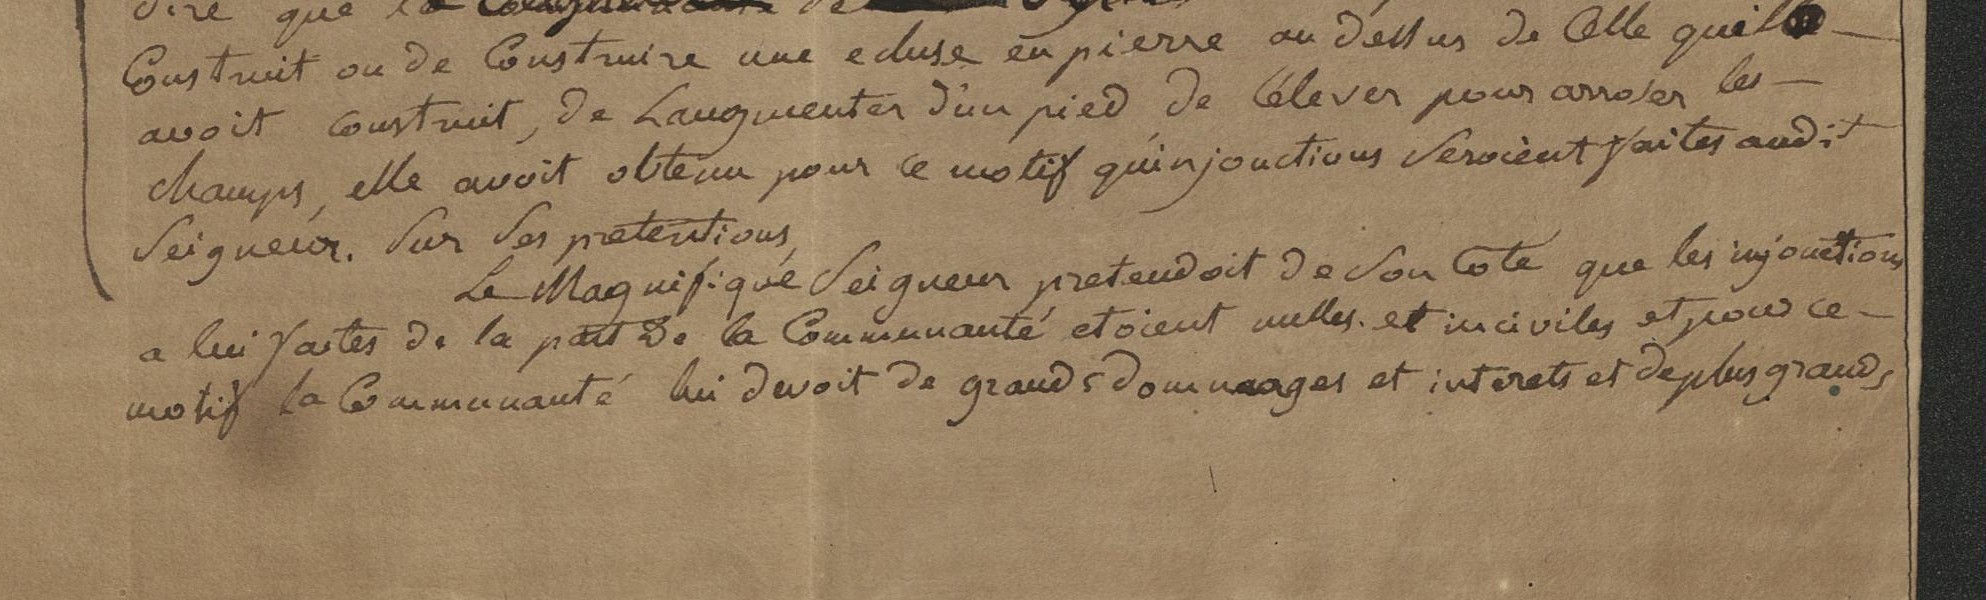 dire que la
Construit ou de Construire une ecluse en pierre au dessus de Celle quil
avoit construit, de Laugmenter d'un pied de l'élever pour arroser les
champs, elle avoit obtenu pour ce motif qu'injonctions seroient faites audit
Seigneur. Sur ses pretentions,
Le Magnifique Seigneur pretendoit de son Coté que les injonctions
a lui faites de la part de la Communauté etoient nulles. et inciviles et pour ce
motif la Communauté lui devoit de grands dommages et interets et deplus grands